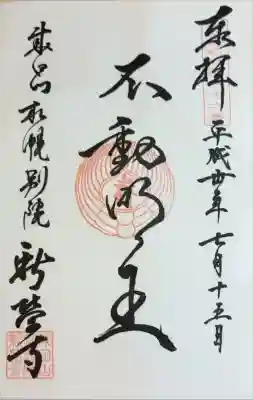 奉拝
平成廿年七月十五日
不動明王
成田山札幌別院
新榮寺